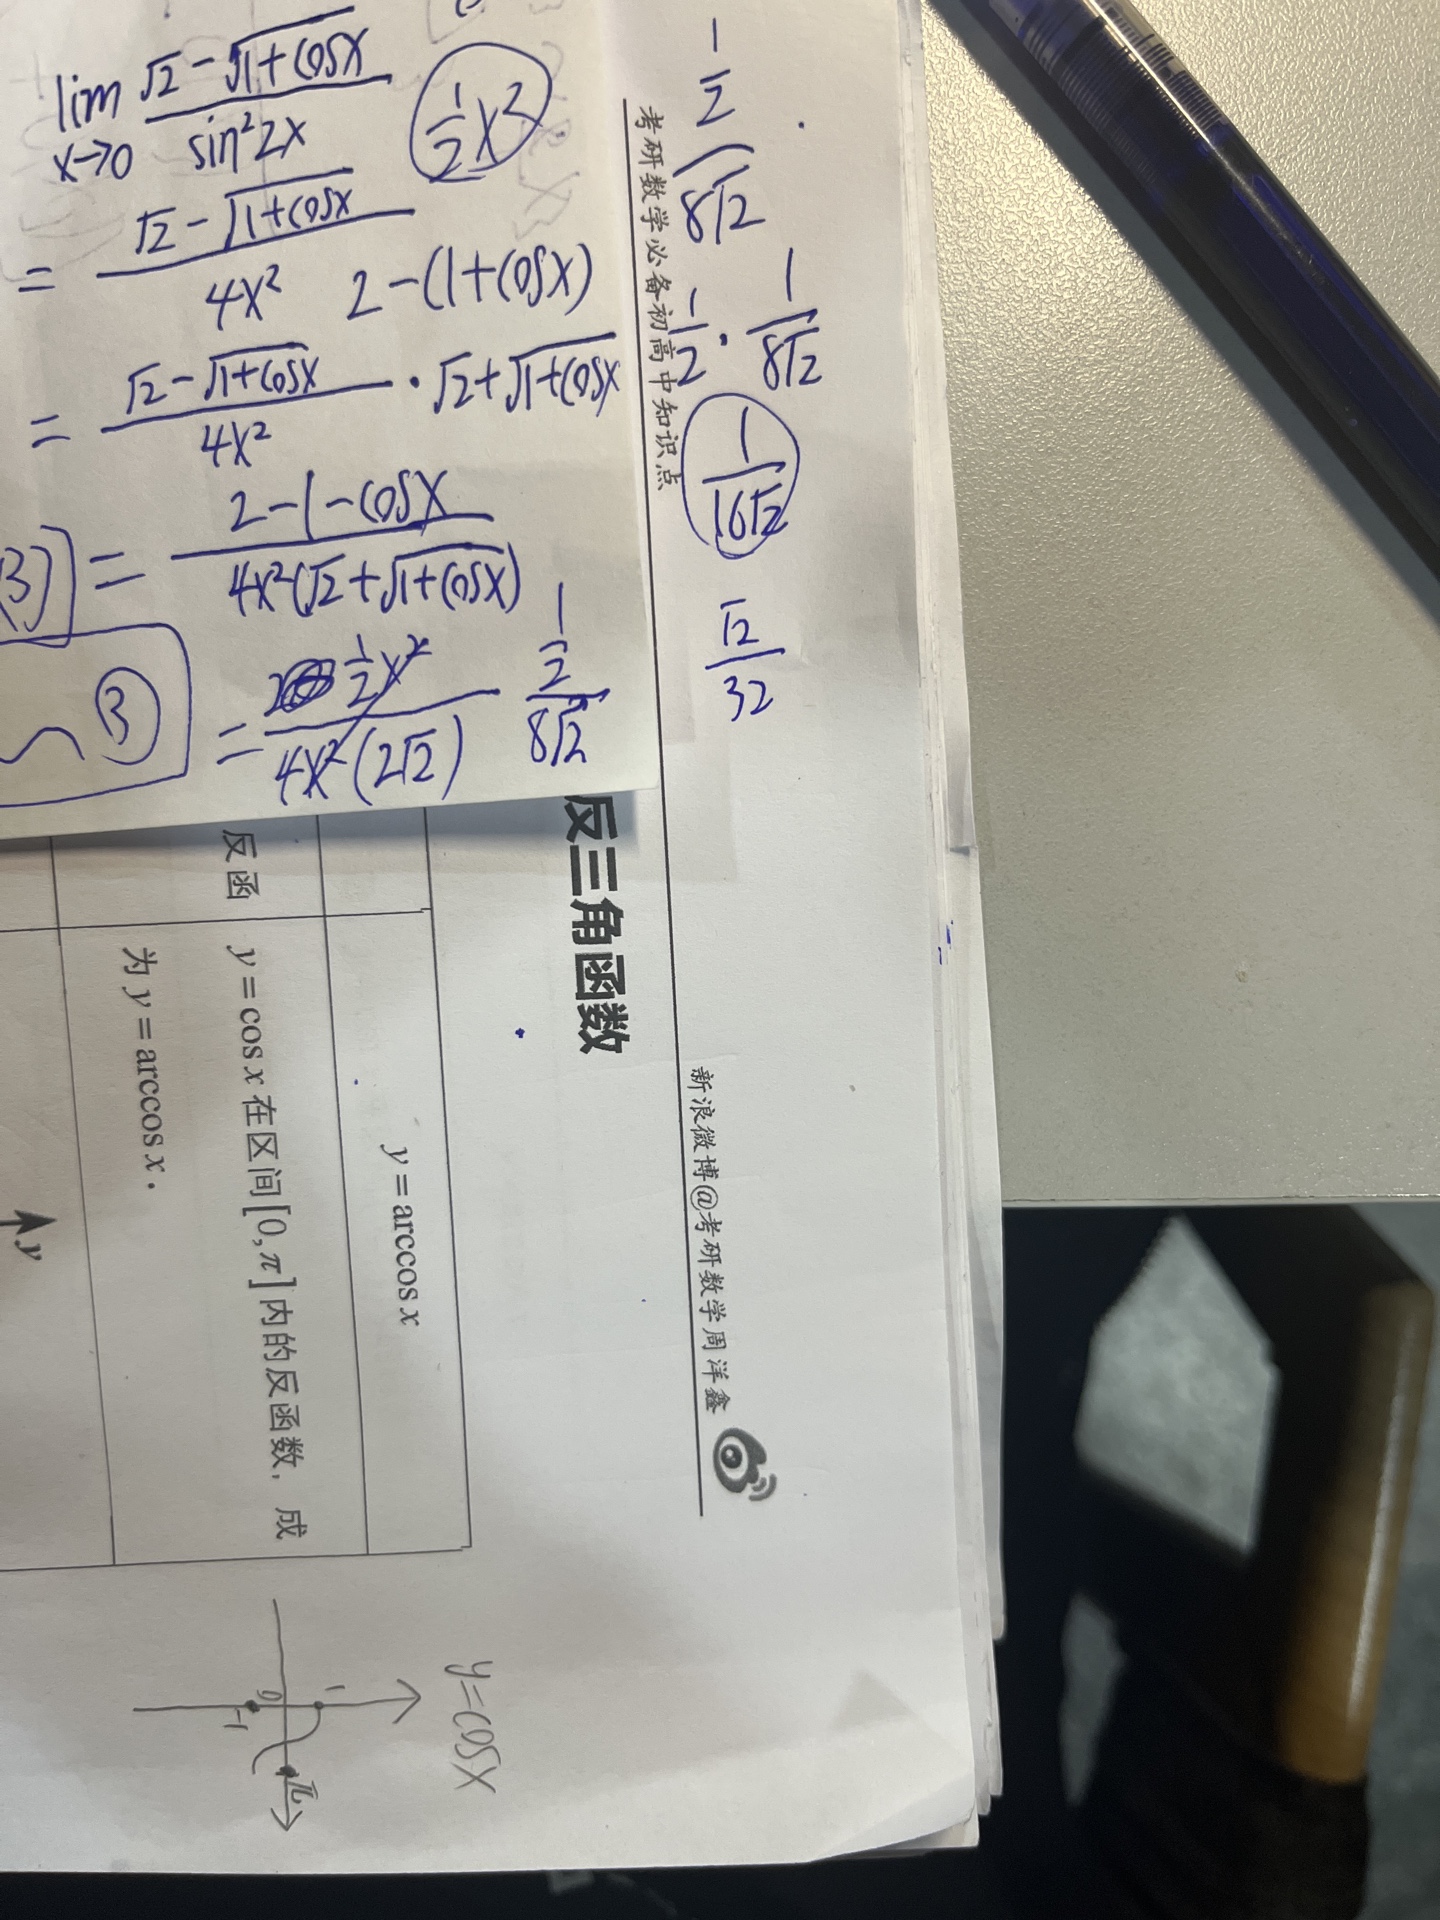 lim x→0 (√2 - √(1+cosx)) / (sin²2x)
1/2 x²
= (√2 - √(1+cosx)) / (4x²)
2-(1+cosx)
= (√2 - √(1+cosx)) / (4x²) · √2 + √(1+cosx)
= (2-1-cosx) / (4x²(√2+√(1+cosx)))
= (1/2 x²) / (4x²(2√2))
1/2 / 8√2
3)
3
1/2 / 8√2
1/2 · 1/8√2
1/16√2
√2/32
考研数学必备初高中知识点
新浪微博@考研数学周洋鑫
反三角函数
y=arccos x
反函
y=cos x 在区间[0,π]内的反函数，成
为 y=arccos x.
y
y=cosx
1
0
-1
π